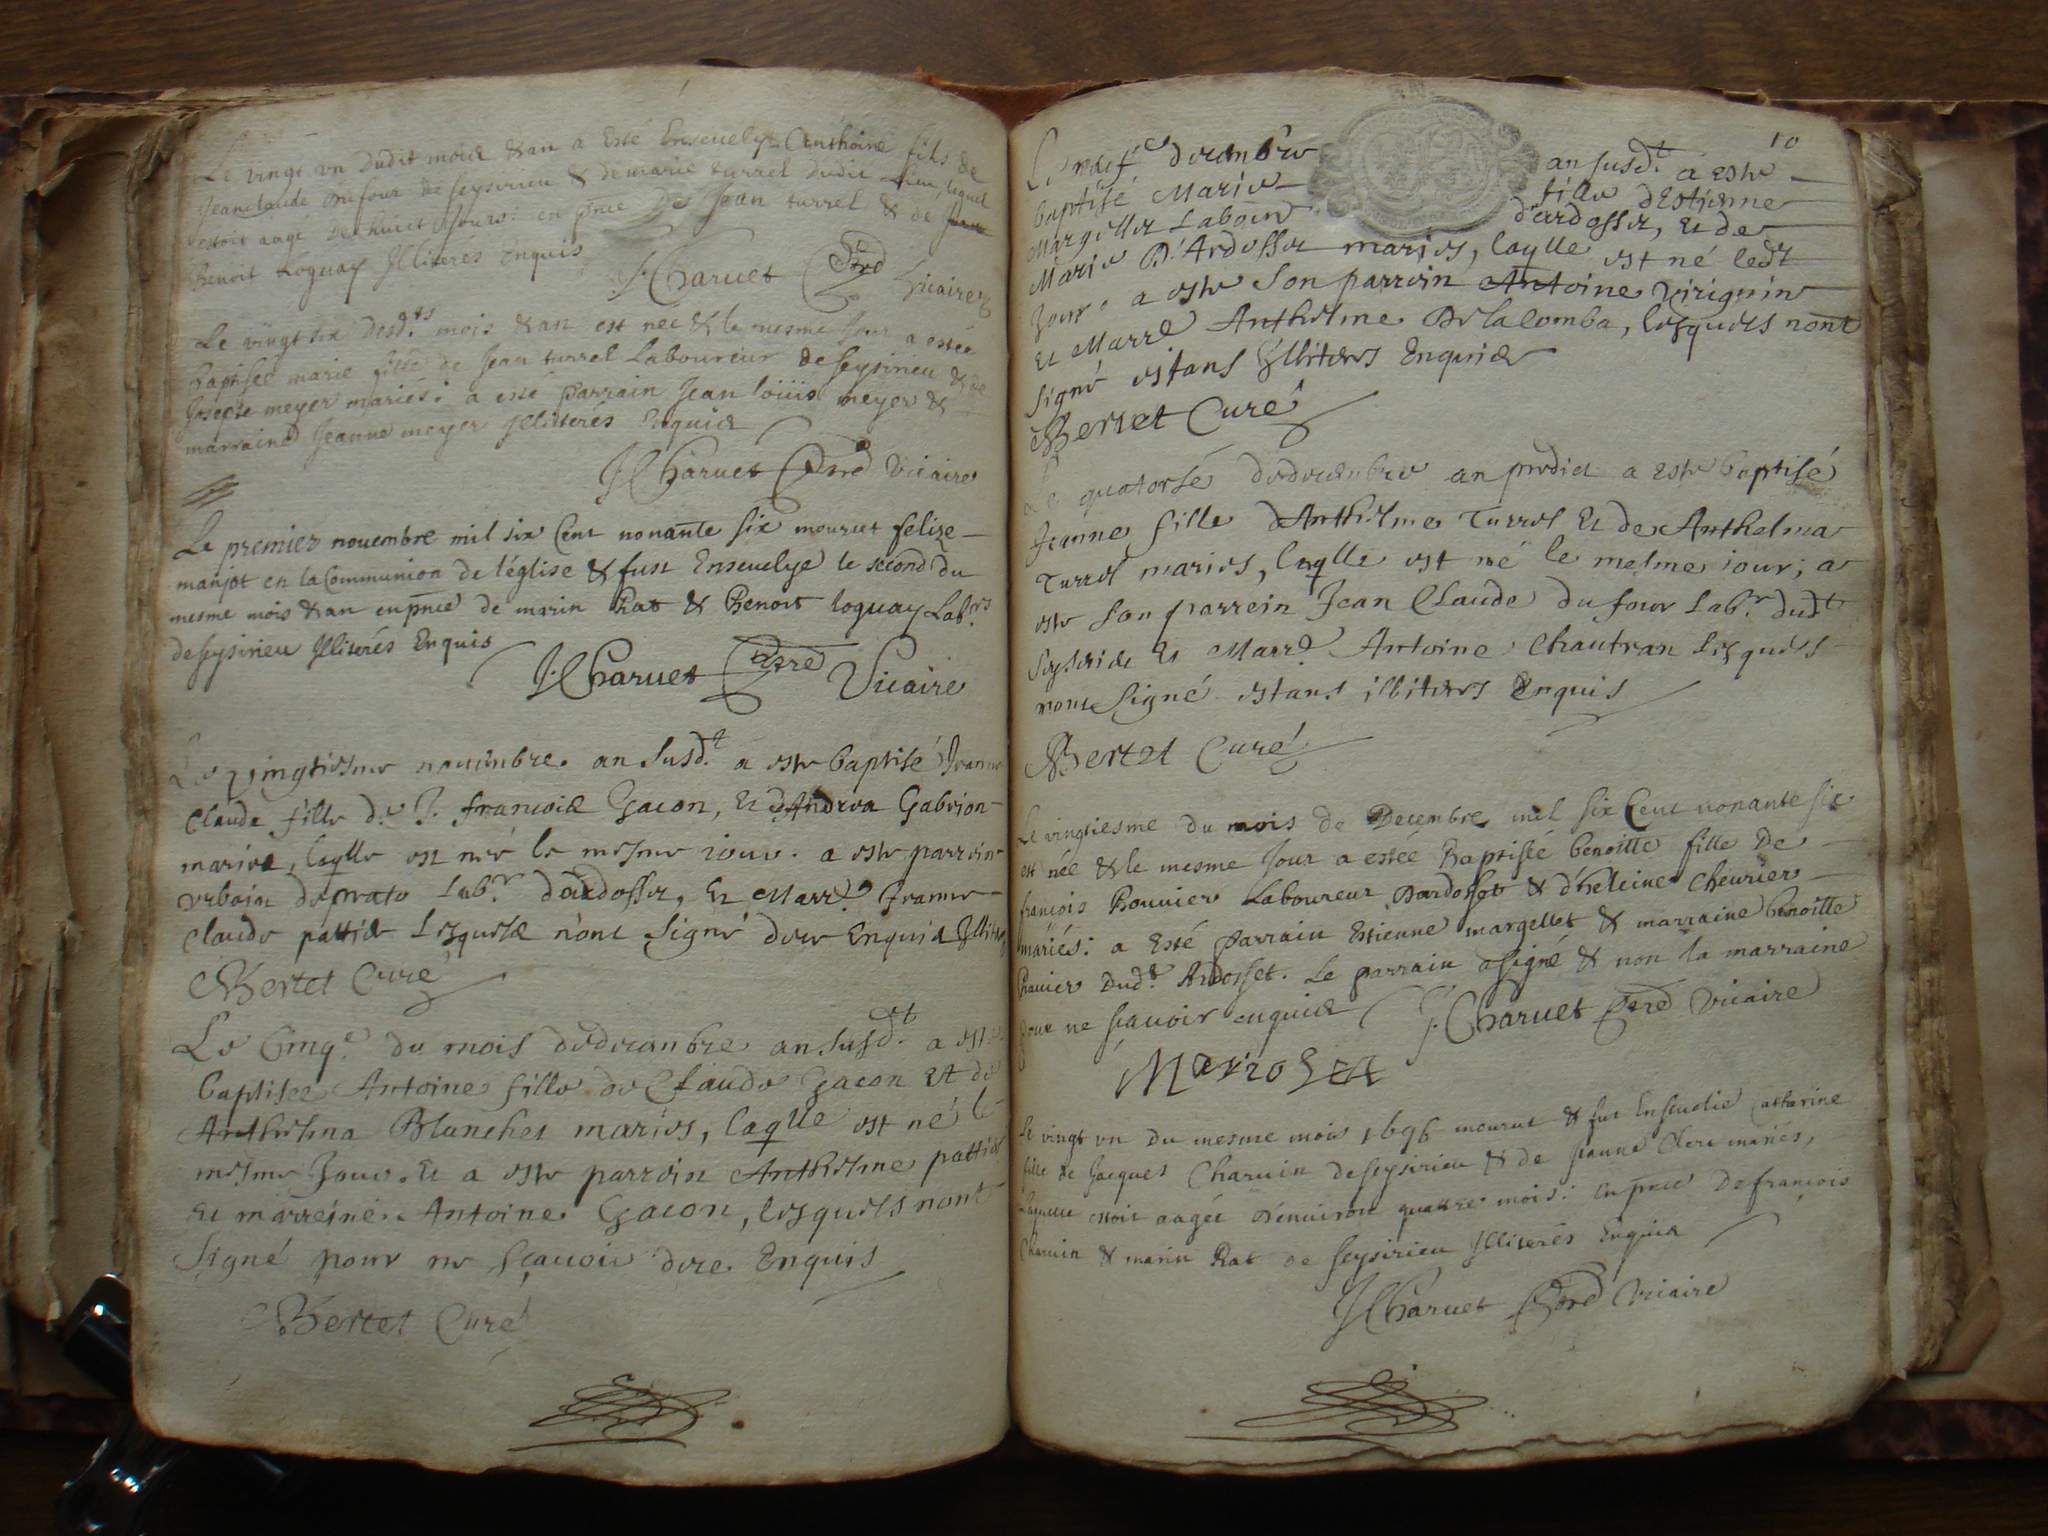 Le vingt un dudit mois & an a esté Ensevelys Anthoine fils de
Jeanclaude Dufour de seysirieu & demarie turrel dudit Lieu, lequel
estoit aagé de huict Jours. en pnce De Jean turrel & de
Benoit Loguay Illiterés Enquis
J. Charuet Ptre Vicaire
Le vingt six desd.ts mois & an est neé & le mesme Jour a estée
Baptisée marie fille de Jean turrel Laboureur de seysirieu & de
Josepte meyer mariés: a esté Parrain Jean louiis meyer &
marraine Jeanne meyer Illiterés Enquis
J Charuet Ptre Vicaire
Le premier nouembre mil six Cent nonante six mourut felize
manjot en la Communion de l'église & fust Enseuelye le second du
mesme mois & an en pnce de marin Rat & Benoit loguay Lab.rs
de seysirieu Illiterés Enquis
J. Charuet Ptre Vicaire
Le vingtiesme nouembre an susd.t a este baptisé Jeanne
Claude fille de J. francois Gacon, et dAndrea Gabrion
maries, laqlle est née le mesme iour. a este parrein
urbain duprato Lab.r dardosset, et Marr.e Jeanne
Claude pattid lesquels nont signé de ce Enquis Illiters
Bertet Curé
Le Cinq.e du mois dedecembre an susd.t a este
baptisee Antoine fille de Claude Gacon et de
Anthelma Blanchet maries, laqlle est né le
mesme Jour. et a este parrein Anthelme pattid
et marreine Antoine Gacon, lesquels nont
signé pour ne scauoir de ce Enquis
Bertet Curé
10
Le neuf.e decembre an susd.t a este
baptisé Marie fille dEstienne
Margellet Labour d'ardosset, et de
Marie D'Ardosset maries, laqlle est né ledt
Jour. a este son parrein Antoine virignin
et Marre Anthelme Delacomba, lesquels nont
signé estans Illiters Enquis
Bertet Curé
Le quatorsé dedecembre an predict a este baptisé
Jeanne fille dAnthelme Turrel et de Anthelma
Turrel maries, laqlle est né le mesme iour; a
este son parrein Jean Claude du four Lab.r dudt
et Marr.e Antoine Chautran lesquels
nont signé estans illiters Enquis
Bertet Curé
Le vingtiesme du mois de Decembre mil six Cent nonante six
est née & le mesme Jour a estée Baptisée benoitte fille De
francois Bouuier Laboureur Dardosset & d'heleine Cheurier
mariés: a Esté Parrain Estienne margellet & marraine benoitte
Dud.t Ardosset. Le parrain a signé & non la marraine
pour ne scauoir enquise J. Charuet Ptre Vicaire
Le vingt vn du mesme mois 1696 mourut & fut Enseuelie Catharine
fille de Jacques Charuin de seysirieu & de Jeanne Clerc mariés,
Laquelle estoit aagée D'enuiron quattre mois: en pnce De francois
Charuin & marin Rat de seysirieu Illiterés Enquis
J Charuet Ptre Vicaire